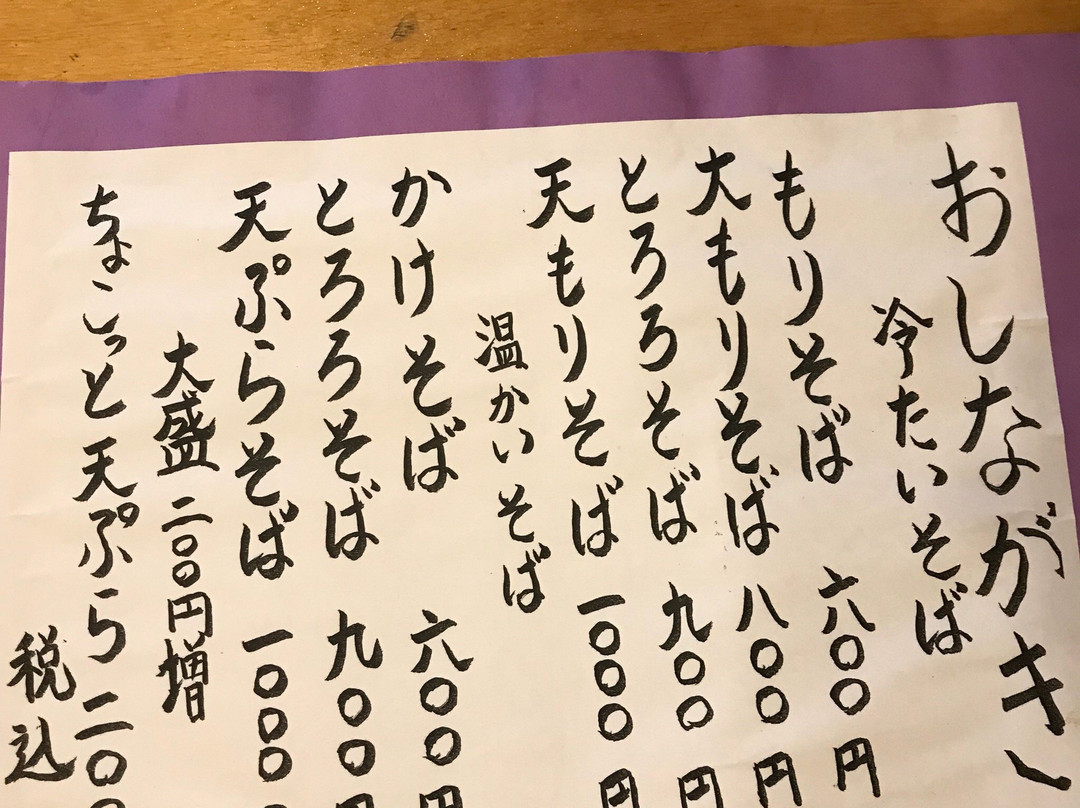 おしながき
冷たいそば
もりそば 六〇〇円
大もりそば 八〇〇円
とろろそば 九〇〇円
天もりそば 一〇〇〇円
温かいそば
かけそば 六〇〇円
とろろそば 九〇〇円
天ぷらそば 一〇〇〇
大盛 二〇〇円増
ちょこっと天ぷら 二〇〇
税込